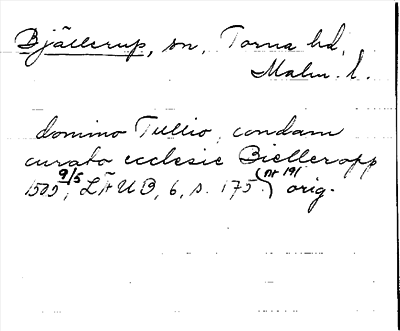 Bjällerup, sn, Torna hd,
Malm. l.
domino Tullio, condam
curato ecclesie Bielleropp
1505 9/5, LÄUB, 6, s. 175 (nr 191) orig.